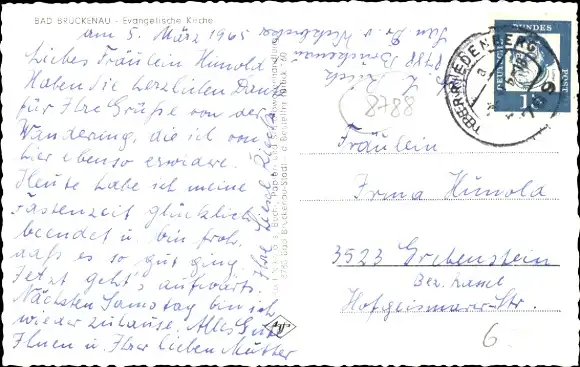 BAD BRÜCKENAU - Evangelische Kirche
am 5. März 1965
Liebes Fräulein Hunold
Haben Sie herzlichen Dank
für Ihre Grüße von der
Wanderung, die ich von
hier ebenso erwidere.
Heute habe ich meine
Fastenzeit glücklich
beendet u. bin froh,
daß es so gut ging.
Jetzt geht's aufwärts.
Nächsten Samstag bin ich
wieder zuhause. Alles Gute
Ihnen u. Ihrer lieben Mutter
Ihre Liesel
8788 Brückenau
8788
DEUTSCHE BUNDESPOST
15
789
Fräulein
Irma Hunold
3523 Grebenstein
Bez. Kassel
Hofgeismarer-Str.
6